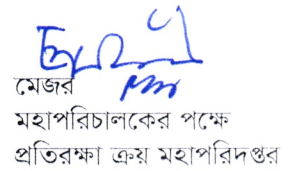 মেজর
মহাপরিচালকের পক্ষে
প্রতিরক্ষা ক্রয় মহাপরিদপ্তর